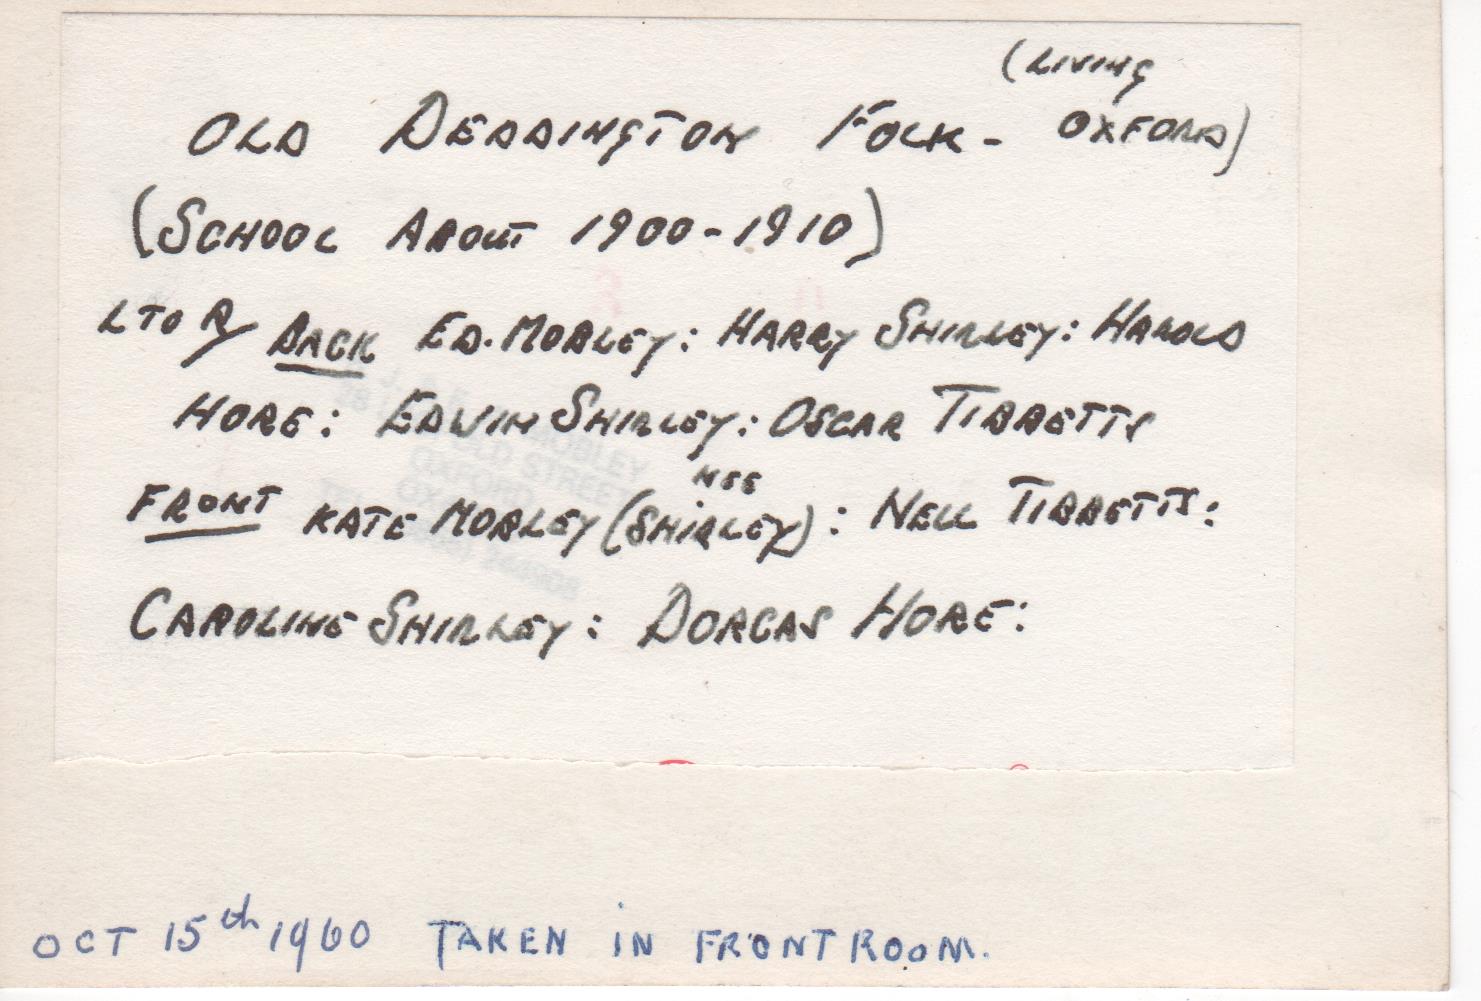 (LIVING
OLD DEDDINGTON FOLK - OXFORD)
(SCHOOL ABOUT 1900-1910)
L TO R/ BACK ED. MOBLEY: HARRY SHIRLEY: HAROLD
HORE: EDWIN SHIRLEY: OSCAR TIBBETTS
NEE
FRONT KATE MOBLEY (SHIRLEY): NELL TIBBETTS:
CAROLINE SHIRLEY: DORCAS HORE:
MOBLEY
OLD STREET
OXFORD
OCT 15th 1960 TAKEN IN FRONT ROOM.